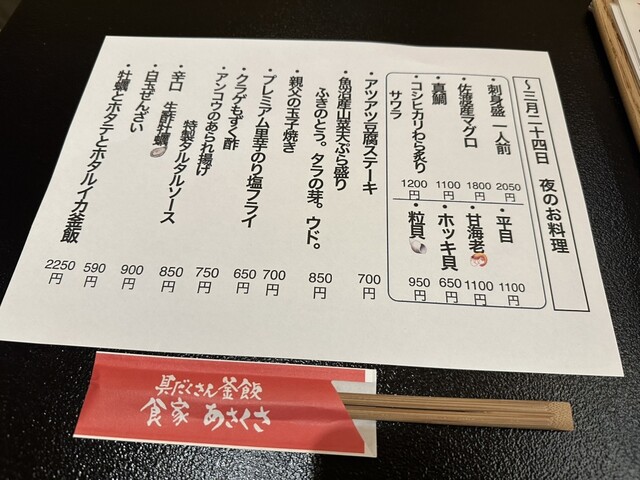 ～三月二十四日　夜のお料理
・刺身盛　一人前　2050円
・佐渡産マグロ　1800円
・真鯛　1100円
・コシヒカリわら炙り
サワラ　1200円
・平目　1100円
・甘海老　1100円
・ホッキ貝　650円
・粒貝　950円
・アツアツ豆腐ステーキ　700円
・魚沼産山菜天ぷら盛り
ふきのとう。タラの芽。ウド。　850円
・親父の玉子焼き　700円
・プレミアム里芋のり塩フライ　650円
・クラゲもずく酢　750円
・アンコウのあられ揚げ
特製タルタルソース　850円
・辛口　生酢牡蠣　900円
・白玉ぜんざい　590円
・牡蠣とホタテとホタルイカ釜飯　2250円
具だくさん釜飯
食家 あさくさ